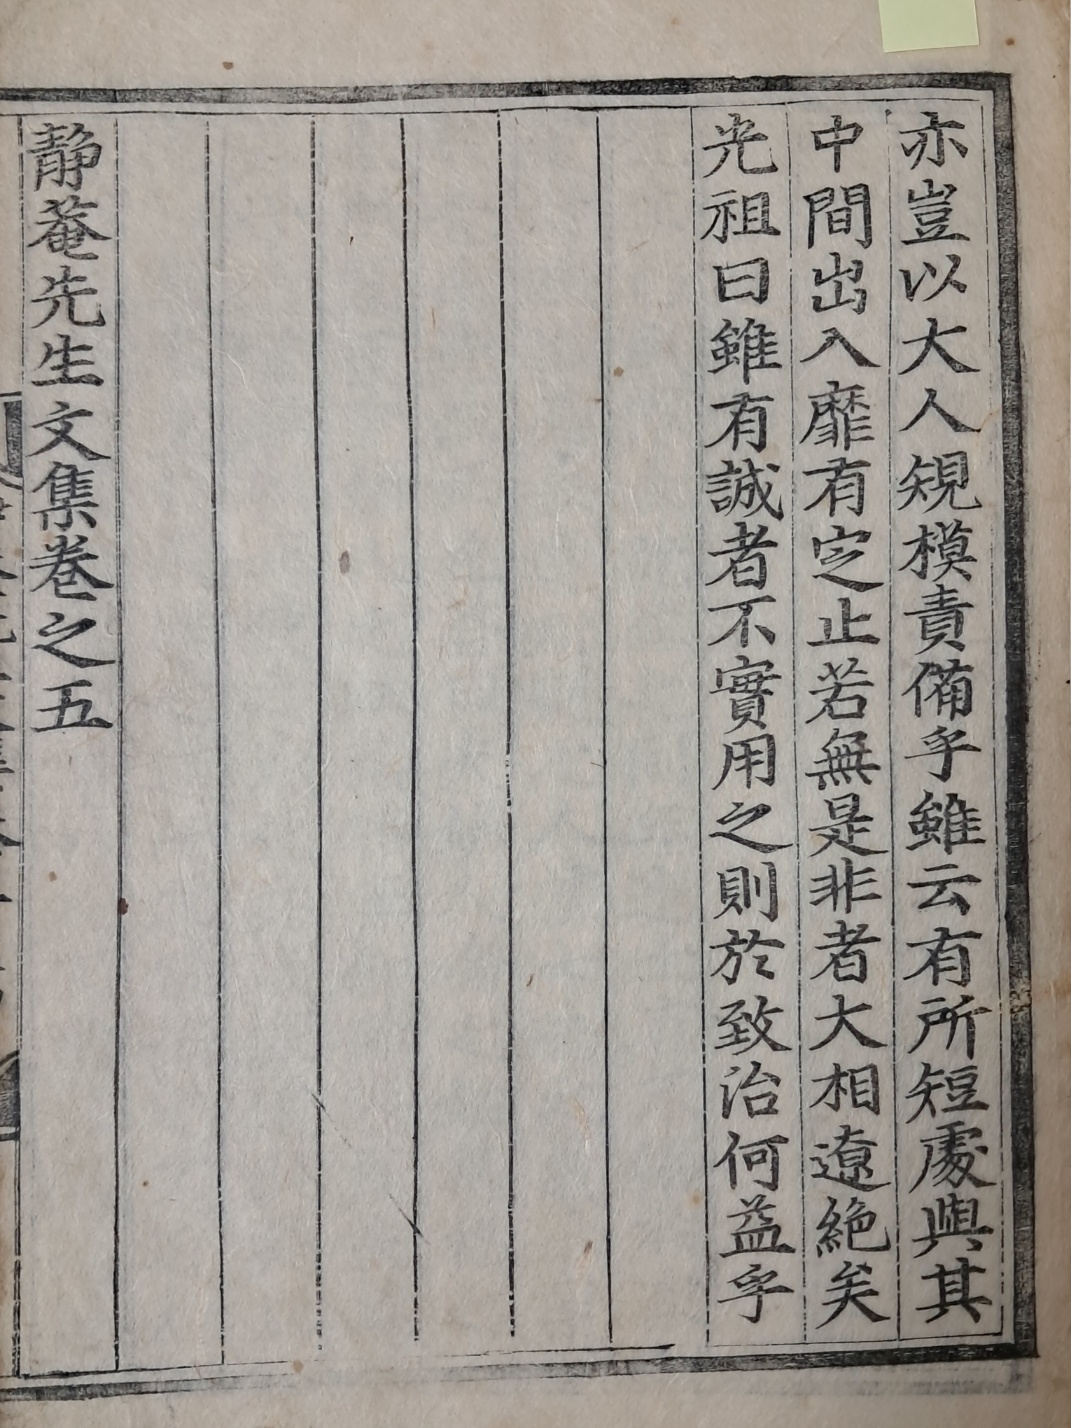 亦豈以大人規模責備乎雖云有所短處與其
中間出入靡有定止若無是非者大相遼絶矣
光祖曰雖有誠者不實用之則於致治何益乎
靜菴先生文集卷之五